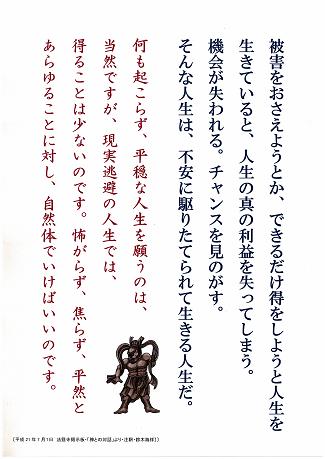 被害をおさえようとか、できるだけ得をしようと人生を
生きていると、人生の真の利益を失ってしまう。
機会が失われる。チャンスを見のがす。
そんな人生は、不安に駆りたてられて生きる人生だ。
何も起こらず、平穏な人生を願うのは、
当然ですが、現実逃避の人生では、
得ることは少ないのです。怖がらず、焦らず、平然と
あらゆることに対し、自然体でいけばいいのです。
（平成21年7月1日 法話寺掲示板・「神との対話」より・注釈・鈴木海祥）